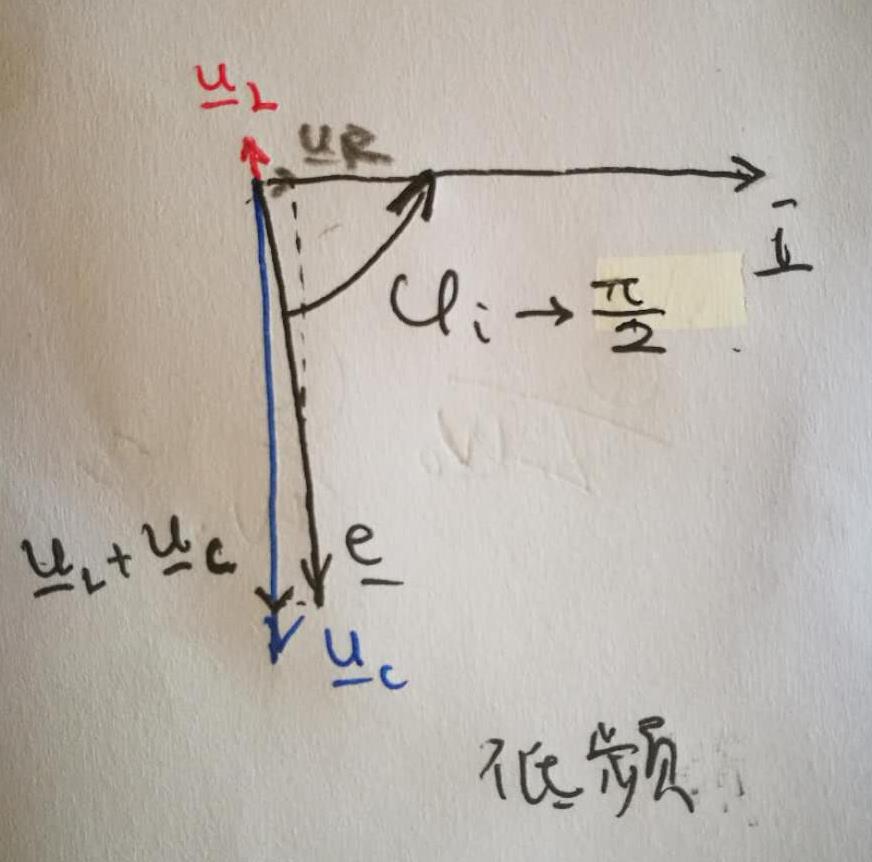 u_L
u_R
i
φ_i → π/2
u_L + u_C
e
u_C
低频